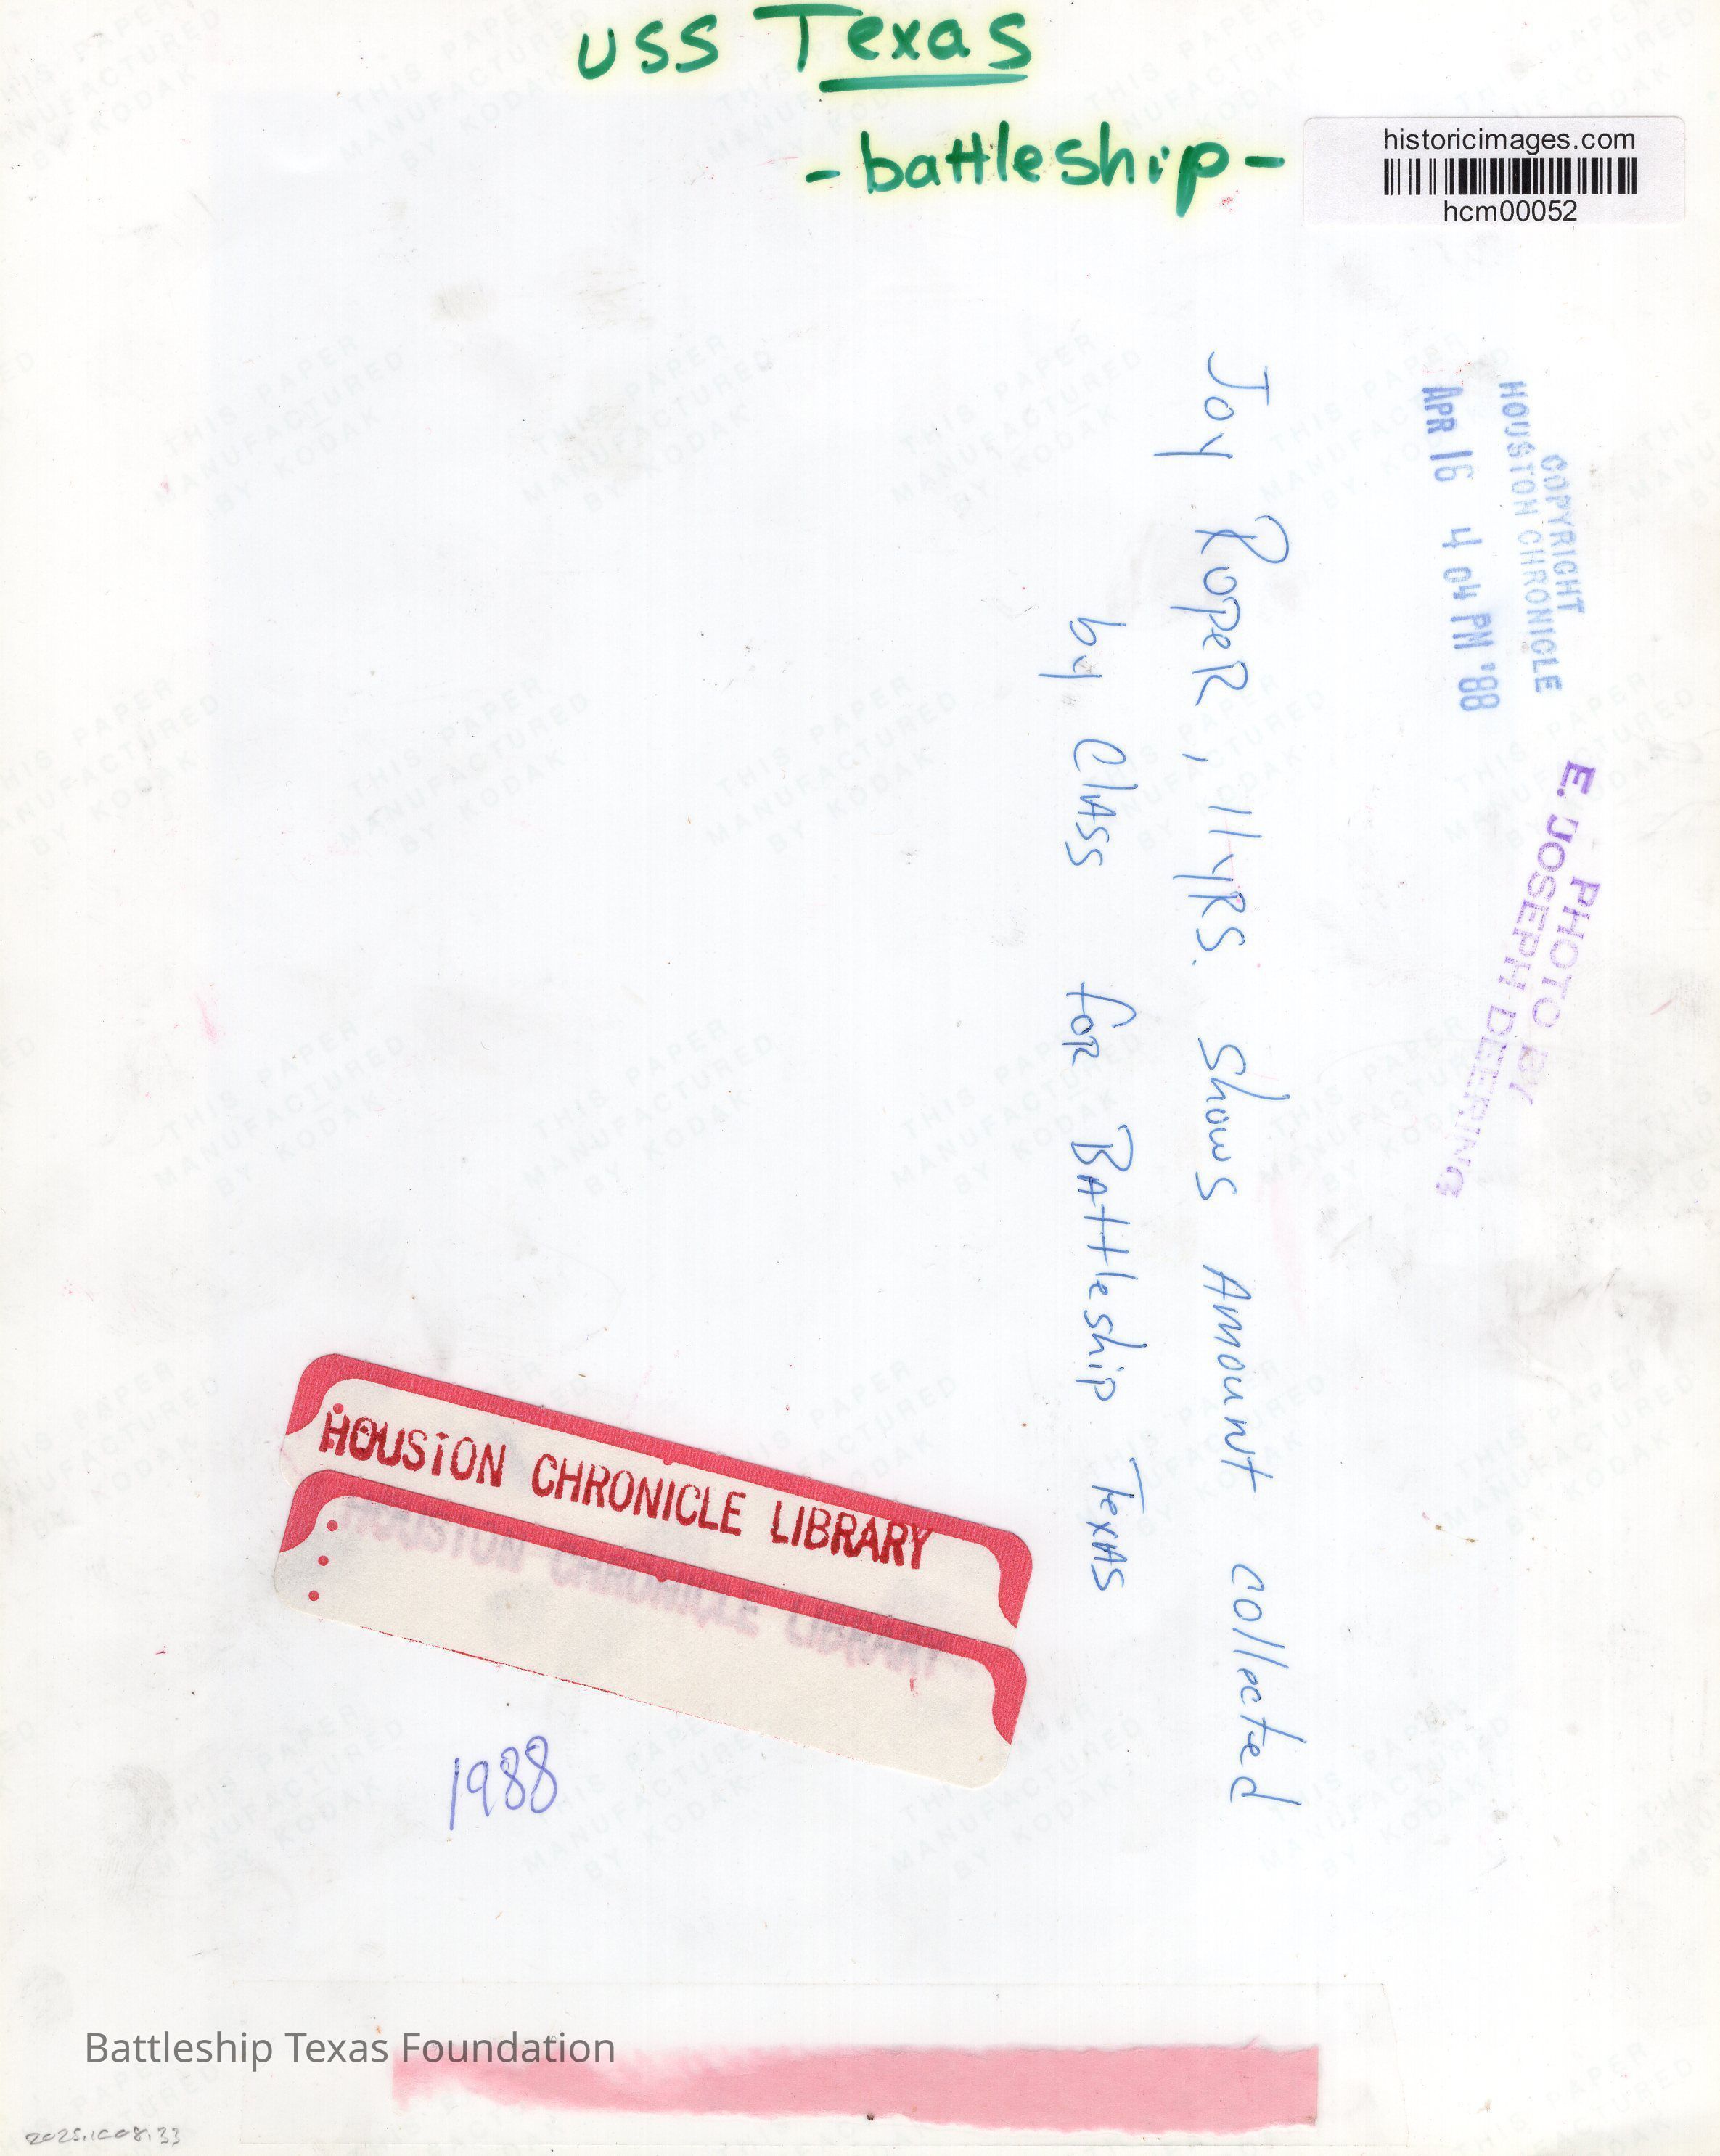 USS Texas
- battleship -
historicimages.com
hcm00052
COPYRIGHT
HOUSTON CHRONICLE
APR 16 4 04 PM '88
PHOTO BY
E. JOSEPH DEERING
Joy Roper, 11 yrs. shows Amount collected
by Class for Battleship Texas
HOUSTON CHRONICLE LIBRARY
HOUSTON CHRONICLE LIBRARY
1988
Battleship Texas Foundation
2025.1008.33
THIS PAPER
MANUFACTURED
BY KODAK